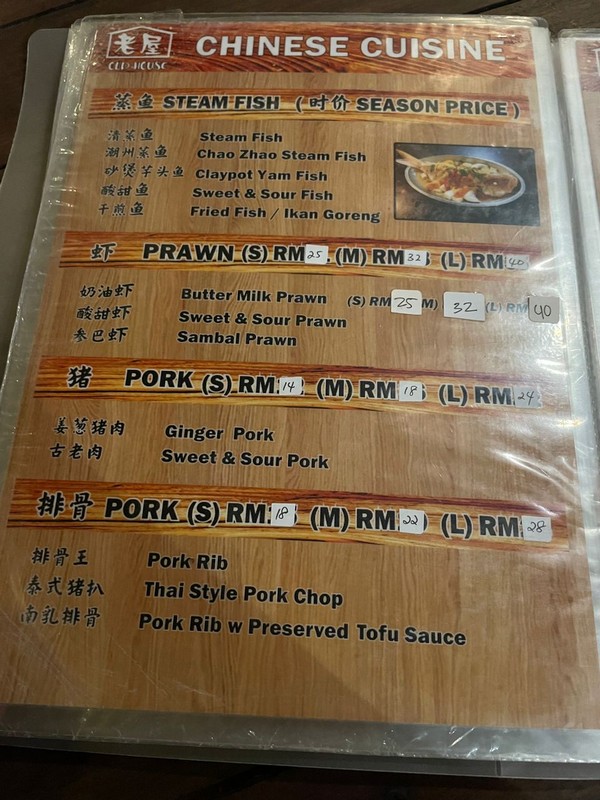 老屋 CHINESE CUISINE
OLD HOUSE
蒸鱼 STEAM FISH (时价 SEASON PRICE)
清蒸鱼 Steam Fish
潮州蒸鱼 Chao Zhao Steam Fish
砂煲芋头鱼 Claypot Yam Fish
酸甜鱼 Sweet & Sour Fish
干煎鱼 Fried Fish / Ikan Goreng
虾 PRAWN (S) RM 25 (M) RM 32 (L) RM 40
奶油虾 Butter Milk Prawn (S) RM 25 M) 32 (L) RM 40
酸甜虾 Sweet & Sour Prawn
参巴虾 Sambal Prawn
猪 PORK (S) RM 14 (M) RM 18 (L) RM 24
姜葱猪肉 Ginger Pork
古老肉 Sweet & Sour Pork
排骨 PORK (S) RM 18 (M) RM 22 (L) RM 28
排骨王 Pork Rib
泰式猪扒 Thai Style Pork Chop
南乳排骨 Pork Rib w Preserved Tofu Sauce